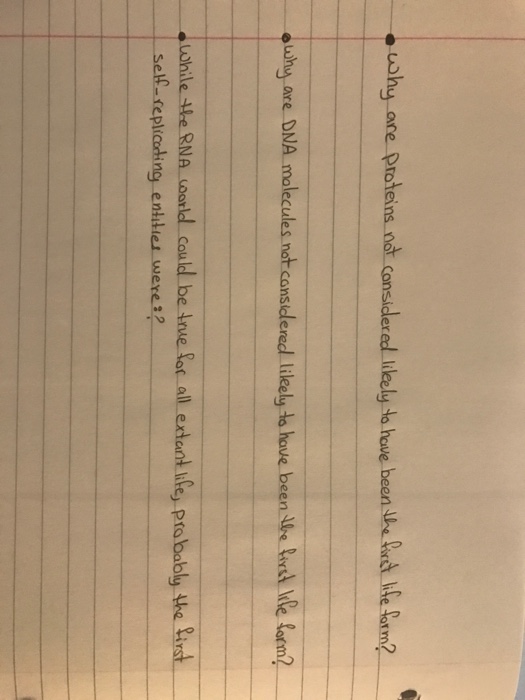 • Why are proteins not considered likely to have been the first life form?
• Why are DNA molecules not considered likely to have been the first life form?
• While the RNA world could be true for all extant life, probably the first
self-replicating entities were:?